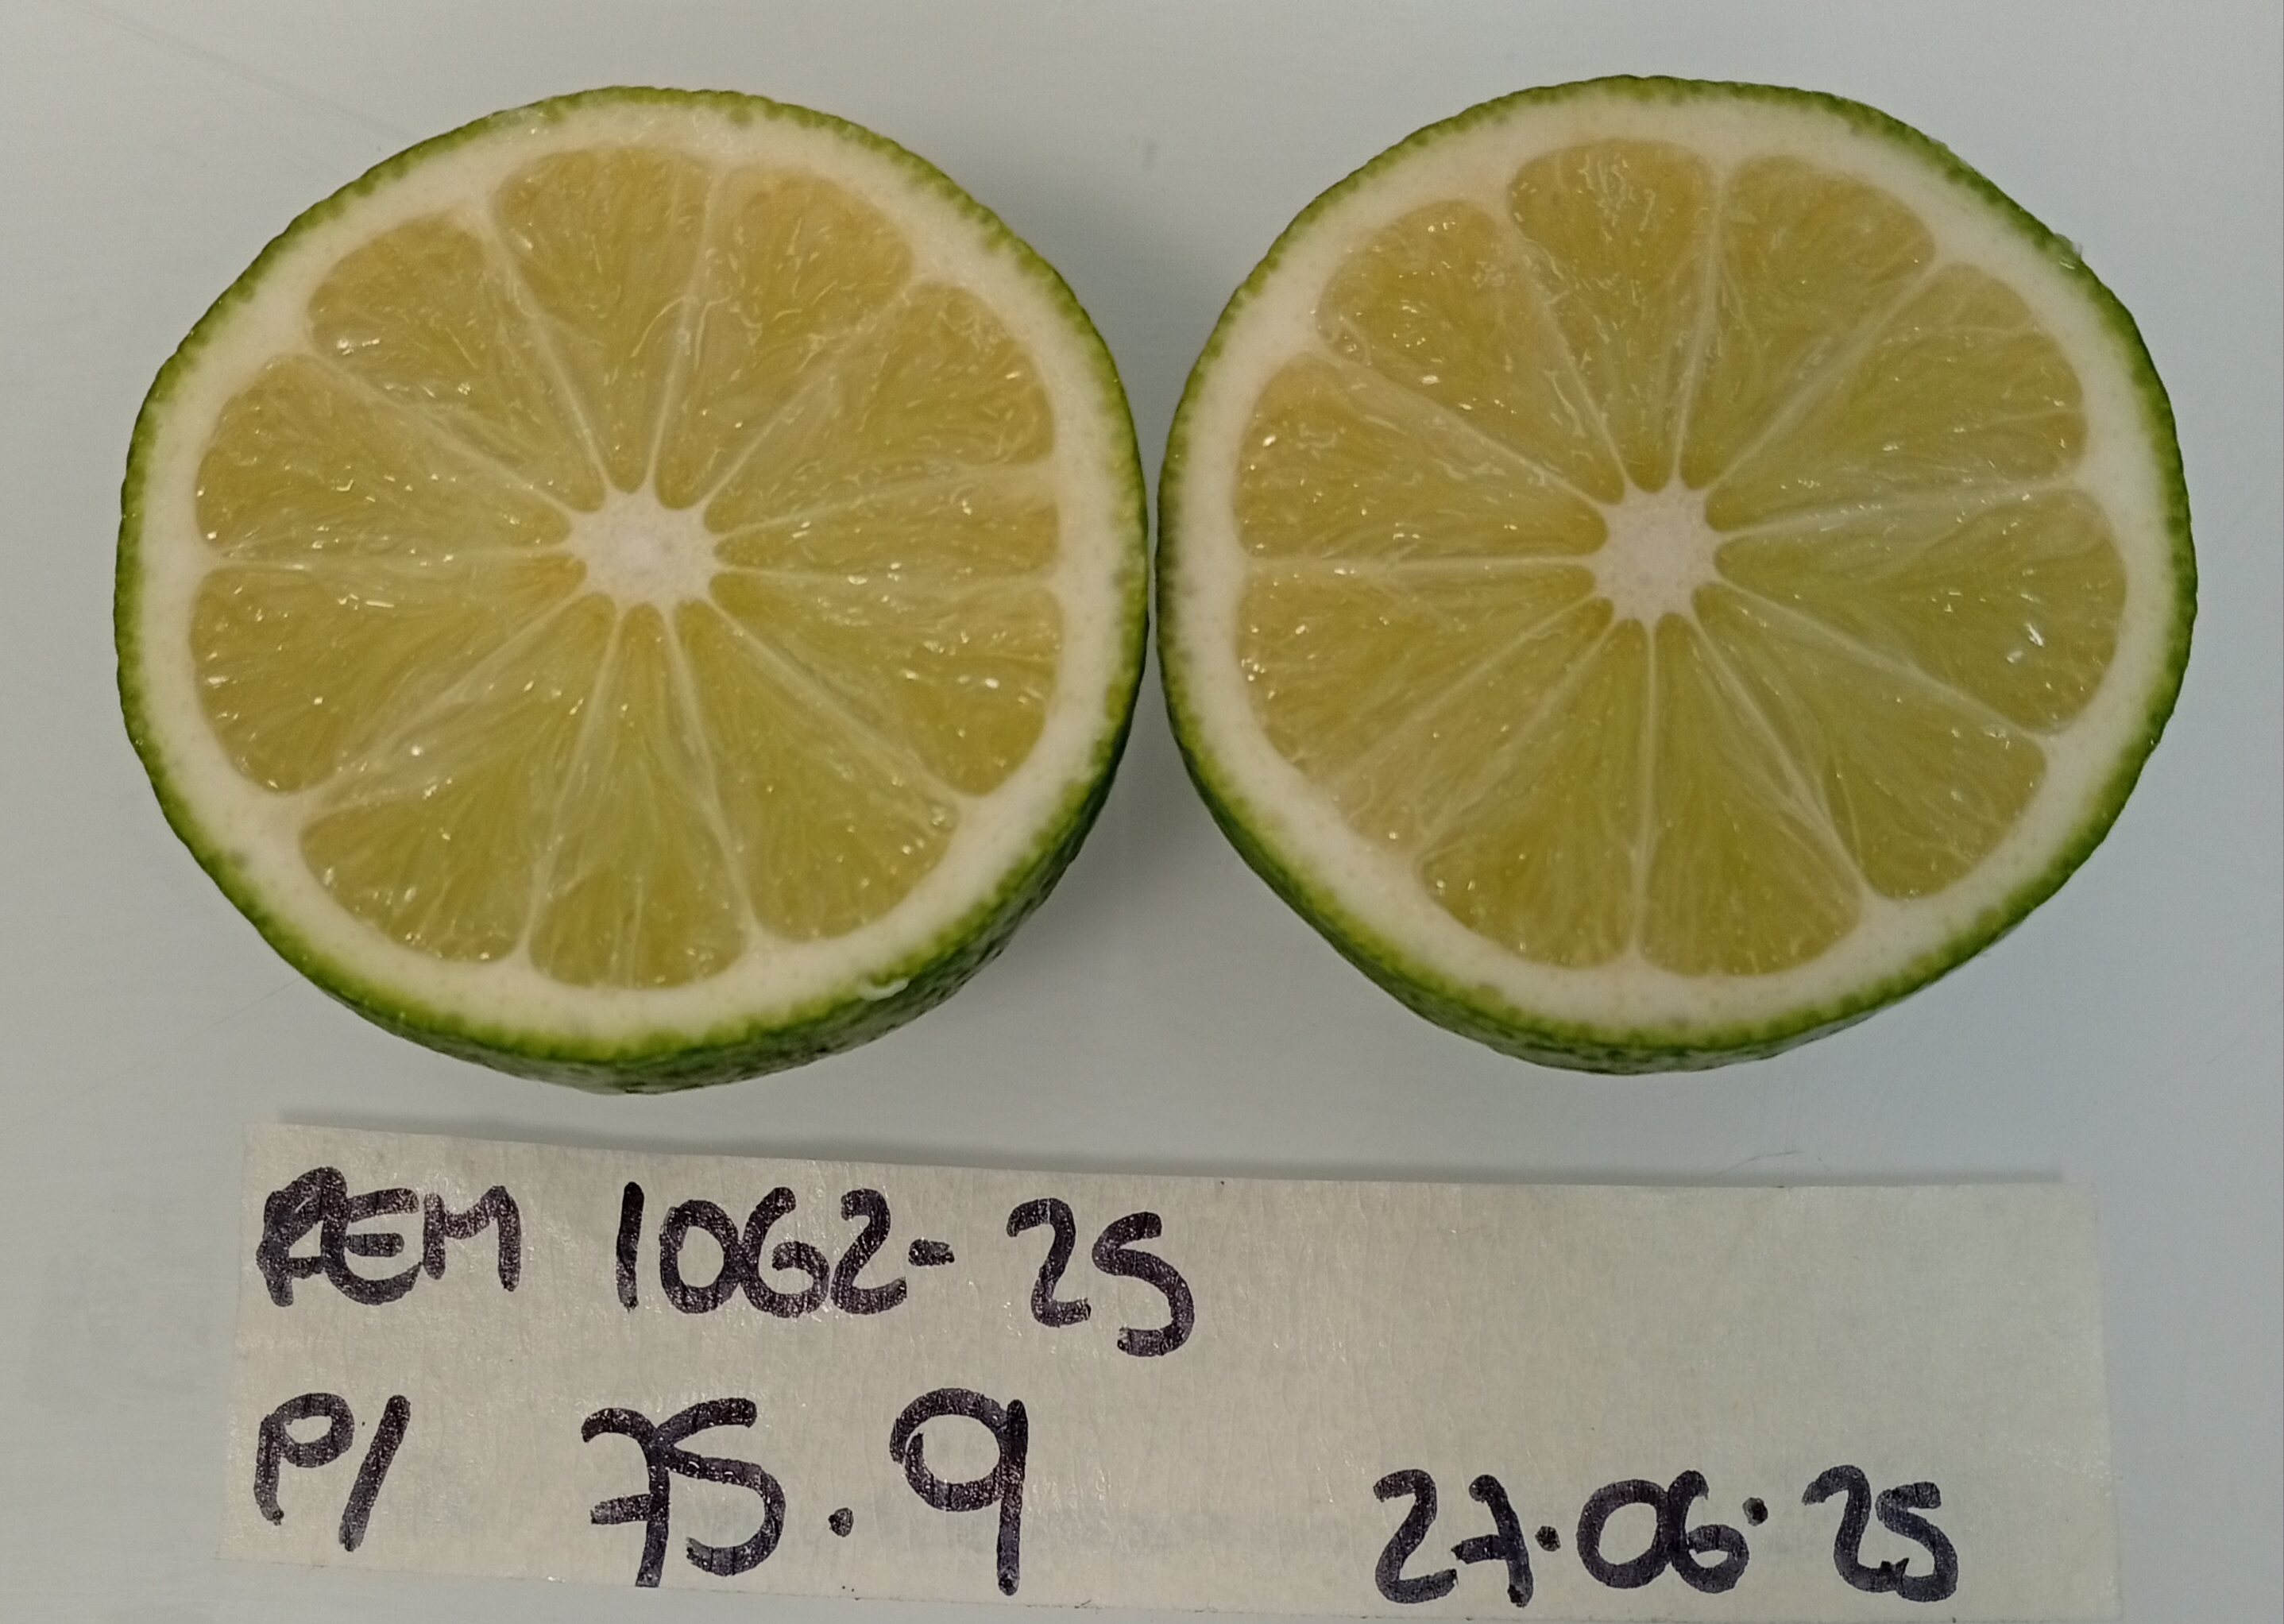 REM 1062-25
P/ 75.9
27.06.25